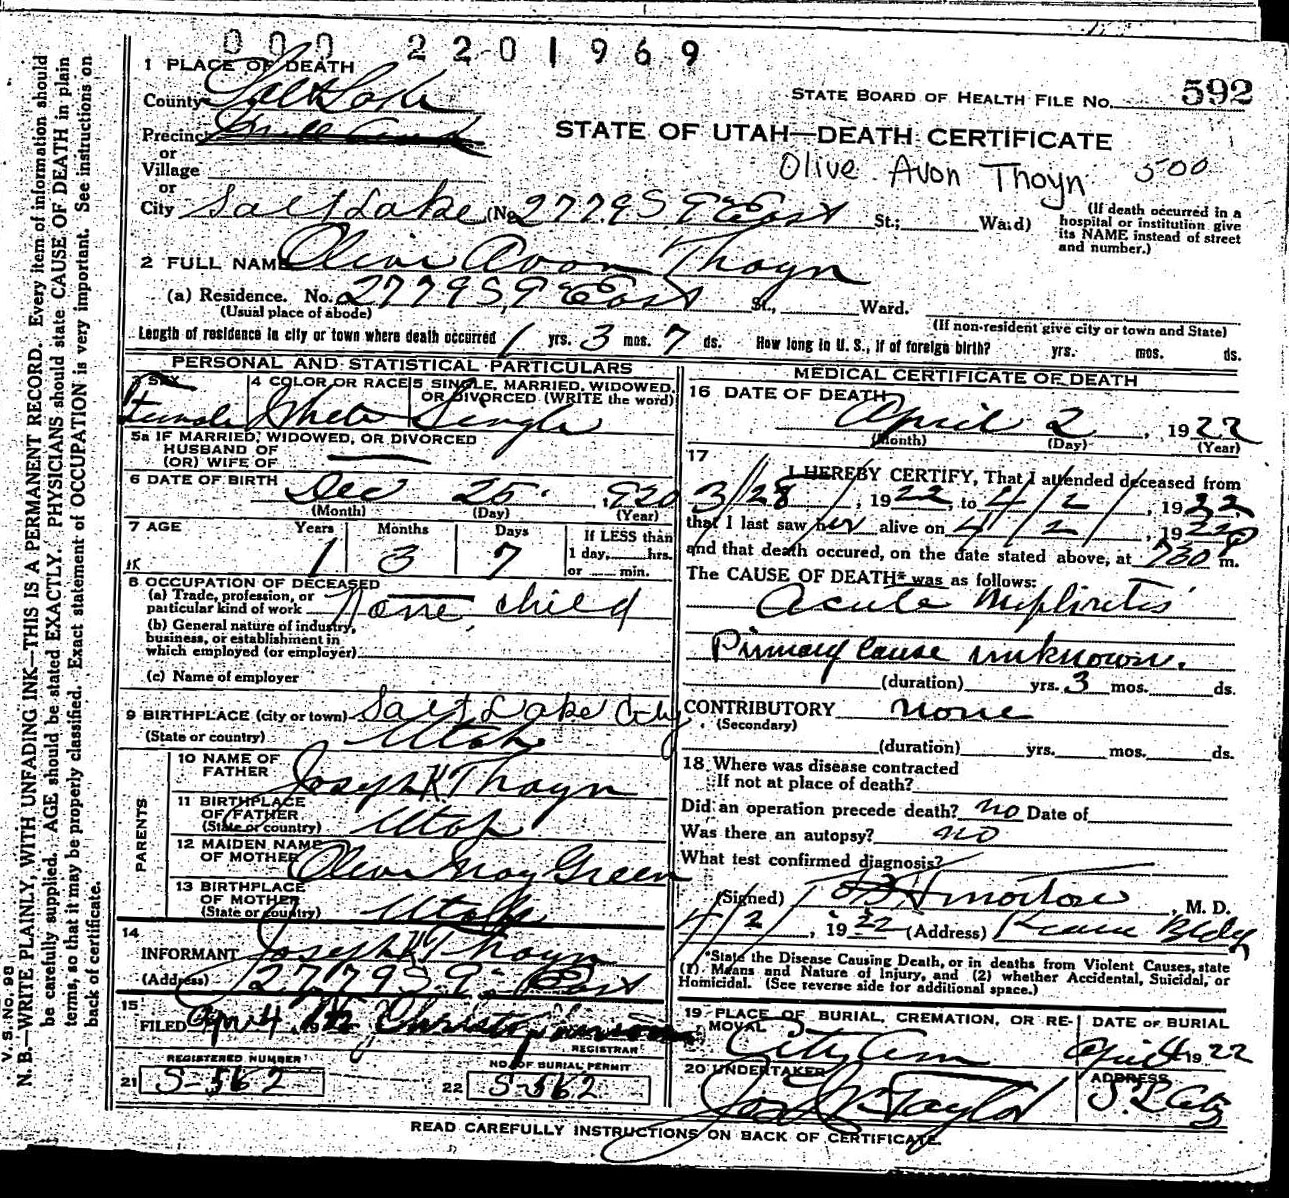 000 2201969
1 PLACE OF DEATH
County Salt Lake
STATE BOARD OF HEALTH FILE NO. 592
Precinct
STATE OF UTAH—DEATH CERTIFICATE
or
Village
Olive Avon Thoyn 500
or
City Salt Lake (No 2779 S 9 East St.; Ward)
(If death occurred in a hospital or institution give its NAME instead of street and number.)
2 FULL NAME Olive Avon Thayn
(a) Residence. No. 2779 S 9 East St., Ward.
(Usual place of abode)
(If non-resident give city or town and State)
Length of residence in city or town where death occurred 1 yrs. 3 mos. 7 ds. How long in U. S., if of foreign birth? yrs. mos. ds.
PERSONAL AND STATISTICAL PARTICULARS
3 SEX
Female
4 COLOR OR RACE
White
5 SINGLE, MARRIED, WIDOWED, OR DIVORCED (WRITE the word)
Single
5a IF MARRIED, WIDOWED, OR DIVORCED
HUSBAND OF
(OR) WIFE OF
6 DATE OF BIRTH Dec 25 1920
(Month) (Day) (Year)
7 AGE Years Months Days If LESS than
1 3 7 1 day, hrs.
or min.
8 OCCUPATION OF DECEASED
(a) Trade, profession, or
particular kind of work None, child
(b) General nature of industry,
business, or establishment in
which employed (or employer)
(c) Name of employer
9 BIRTHPLACE (city or town) Salt Lake City
(State or country) Utah
PARENTS
10 NAME OF
FATHER Joseph K Thayn
11 BIRTHPLACE
OF FATHER
(State or country) Utah
12 MAIDEN NAME
OF MOTHER Olive May Green
13 BIRTHPLACE
OF MOTHER
(State or country) Utah
14
INFORMANT Joseph K Thayn
(Address) 2779 S 9 East
15
FILED Apr 4, 1922
REGISTRAR
REGISTERED NUMBER
21 S-562
NO. OF BURIAL PERMIT
22 S-562
MEDICAL CERTIFICATE OF DEATH
16 DATE OF DEATH
April 2, 1922
(Month) (Day) (Year)
17
I HEREBY CERTIFY, That I attended deceased from
3/28/, 1922, to 4/2/, 1922
that I last saw her alive on 4/2/, 1922
and that death occured, on the date stated above, at 730 P m.
The CAUSE OF DEATH* was as follows:
Acute Nephritis
Primary Cause unknown.
(duration) yrs. 3 mos. ds.
CONTRIBUTORY none
(Secondary)
(duration) yrs. mos. ds.
18 Where was disease contracted
If not at place of death?
Did an operation precede death? no Date of
Was there an autopsy? no
What test confirmed diagnosis?
(Signed) Morton, M. D.
4/2/, 1922 (Address) Kearns Bldg
*State the Disease Causing Death, or in deaths from Violent Causes, state
(1) Means and Nature of Injury, and (2) whether Accidental, Suicidal, or
Homicidal. (See reverse side for additional space.)
19 PLACE OF BURIAL, CREMATION, OR RE-
MOVAL
City Cem
DATE OF BURIAL
April 4 1922
20 UNDERTAKER
Jos Wm Taylor
ADDRESS
S. L. City
READ CAREFULLY INSTRUCTIONS ON BACK OF CERTIFICATE.
V. S. No. 98
N. B.—WRITE PLAINLY, WITH UNFADING INK—THIS IS A PERMANENT RECORD. Every item of information should
be carefully supplied. AGE should be stated EXACTLY. PHYSICIANS should state CAUSE OF DEATH in plain
terms, so that it may be properly classified. Exact statement of OCCUPATION is very important. See instructions on
back of certificate.